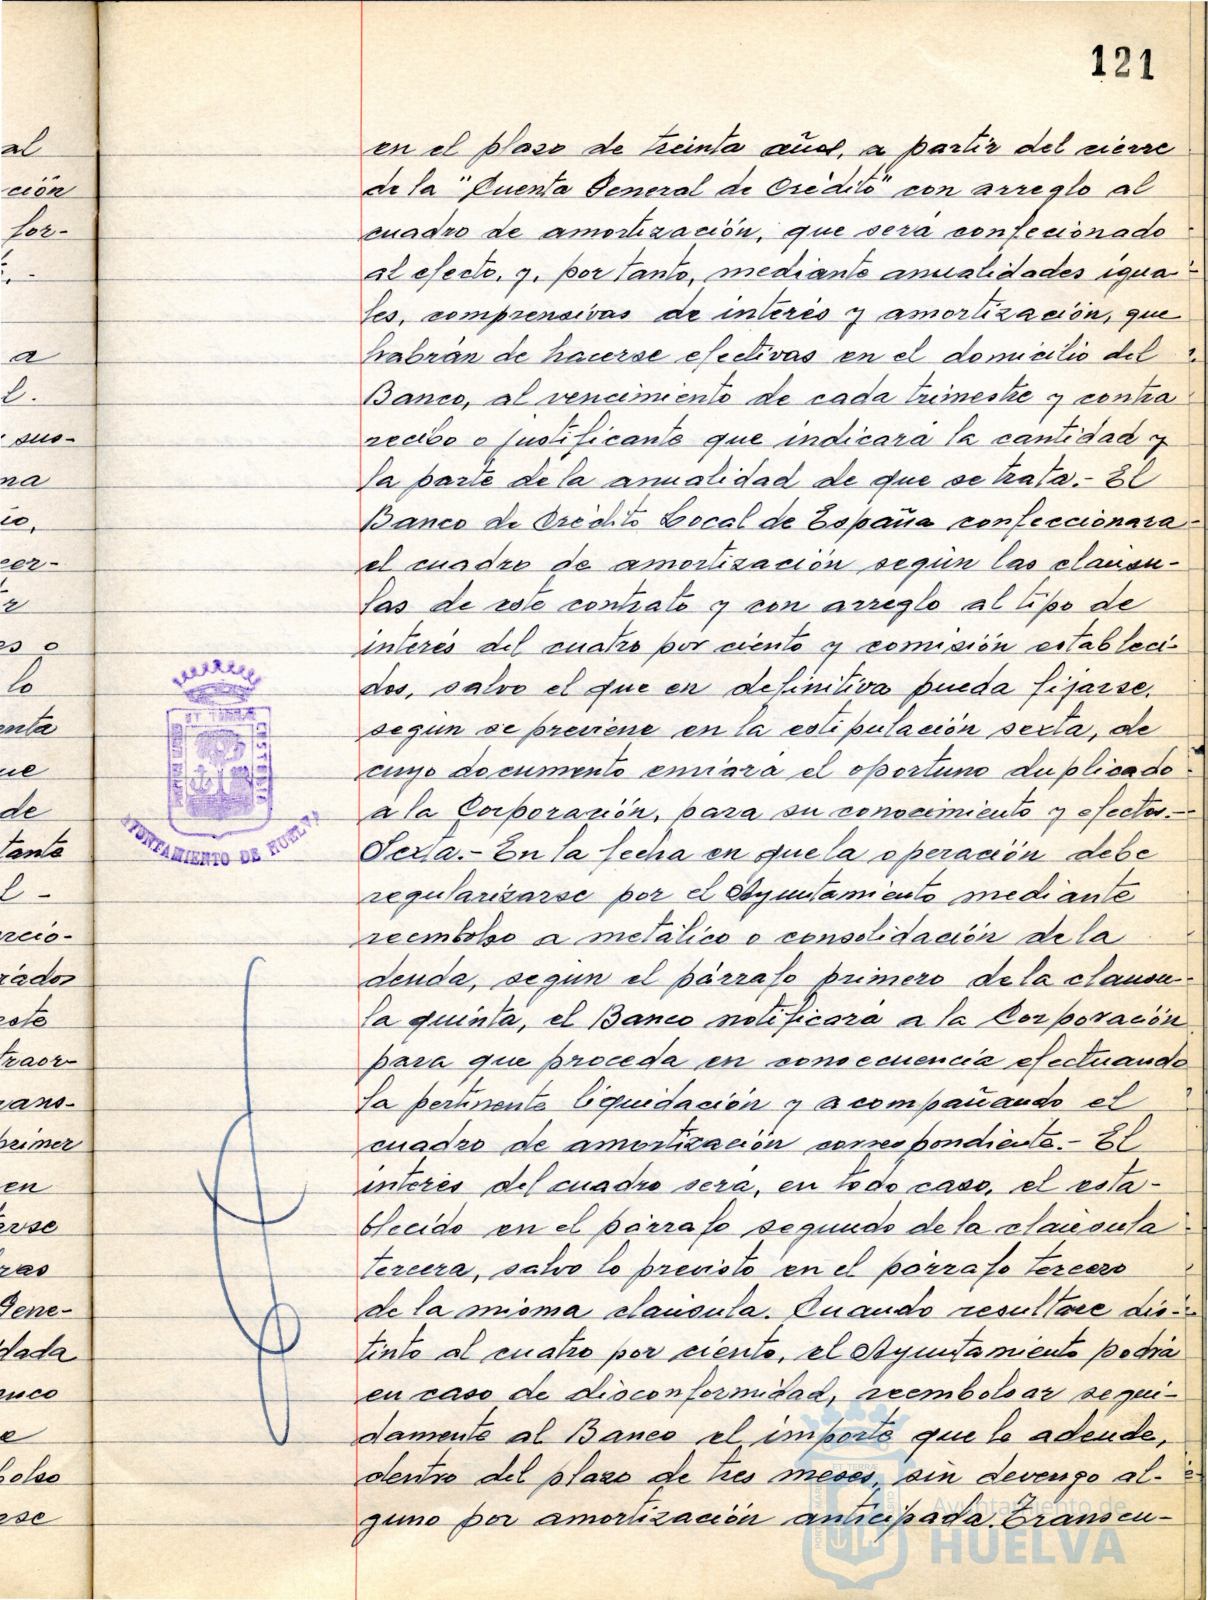 121
en el plazo de treinta años, a partir del cierre
de la "Cuenta General de Crédito" con arreglo al
cuadro de amortización, que será confecionado
al efecto, y, por tanto, mediante anualidades igua-
les, comprensivas de interés y amortización, que
habrán de hacerse efectivas en el domicilio del
Banco, al vencimiento de cada trimestre y contra
recibo o justificante que indicará la cantidad y
la parte de la anualidad de que se trata.- El
Banco de Crédito Local de España confeccionara
el cuadro de amortización según las cláusu-
las de este contrato y con arreglo al tipo de
interés del cuatro por ciento y comisión estableci-
dos, salvo el que en definitiva pueda fijarse,
según se previene en la estipulación sexta, de
cuyo documento enviará el oportuno duplicado
a la Corporación, para su conocimiento y efectos.-
Sexta.- En la fecha en que la operación debe
regularizarse por el Ayuntamiento mediante
reembolso a metálico o consolidación de la
deuda, según el párrafo primero de la cláusu-
la quinta, el Banco notificará a la Corporación
para que proceda en consecuencia efectuando
la pertinente liquidación y acompañando el
cuadro de amortización correspondiente.- El
interés del cuadro será, en todo caso, el esta-
blecido en el párrafo segundo de la cláusula
tercera, salvo lo previsto en el párrafo tercero
de la misma cláusula. Cuando resultare dis-
tinto al cuatro por ciento, el Ayuntamiento podrá
en caso de disconformidad, reembolsar segui-
damente al Banco el importe que le adeude,
dentro del plazo de tres meses, sin devengo al-
guno por amortización anticipada. Transcu-
al
ción
for-
a
l.
sus-
na
io,
cer-
r
es o
lo
enta
ue
de
tante
l -
rcio-
rados
este
traor-
rans-
primer
en
erse
ras
Gene-
dada
anco
e
bolso
rse
AYUNTAMIENTO DE HUELVA
Ayuntamiento de
HUELVA